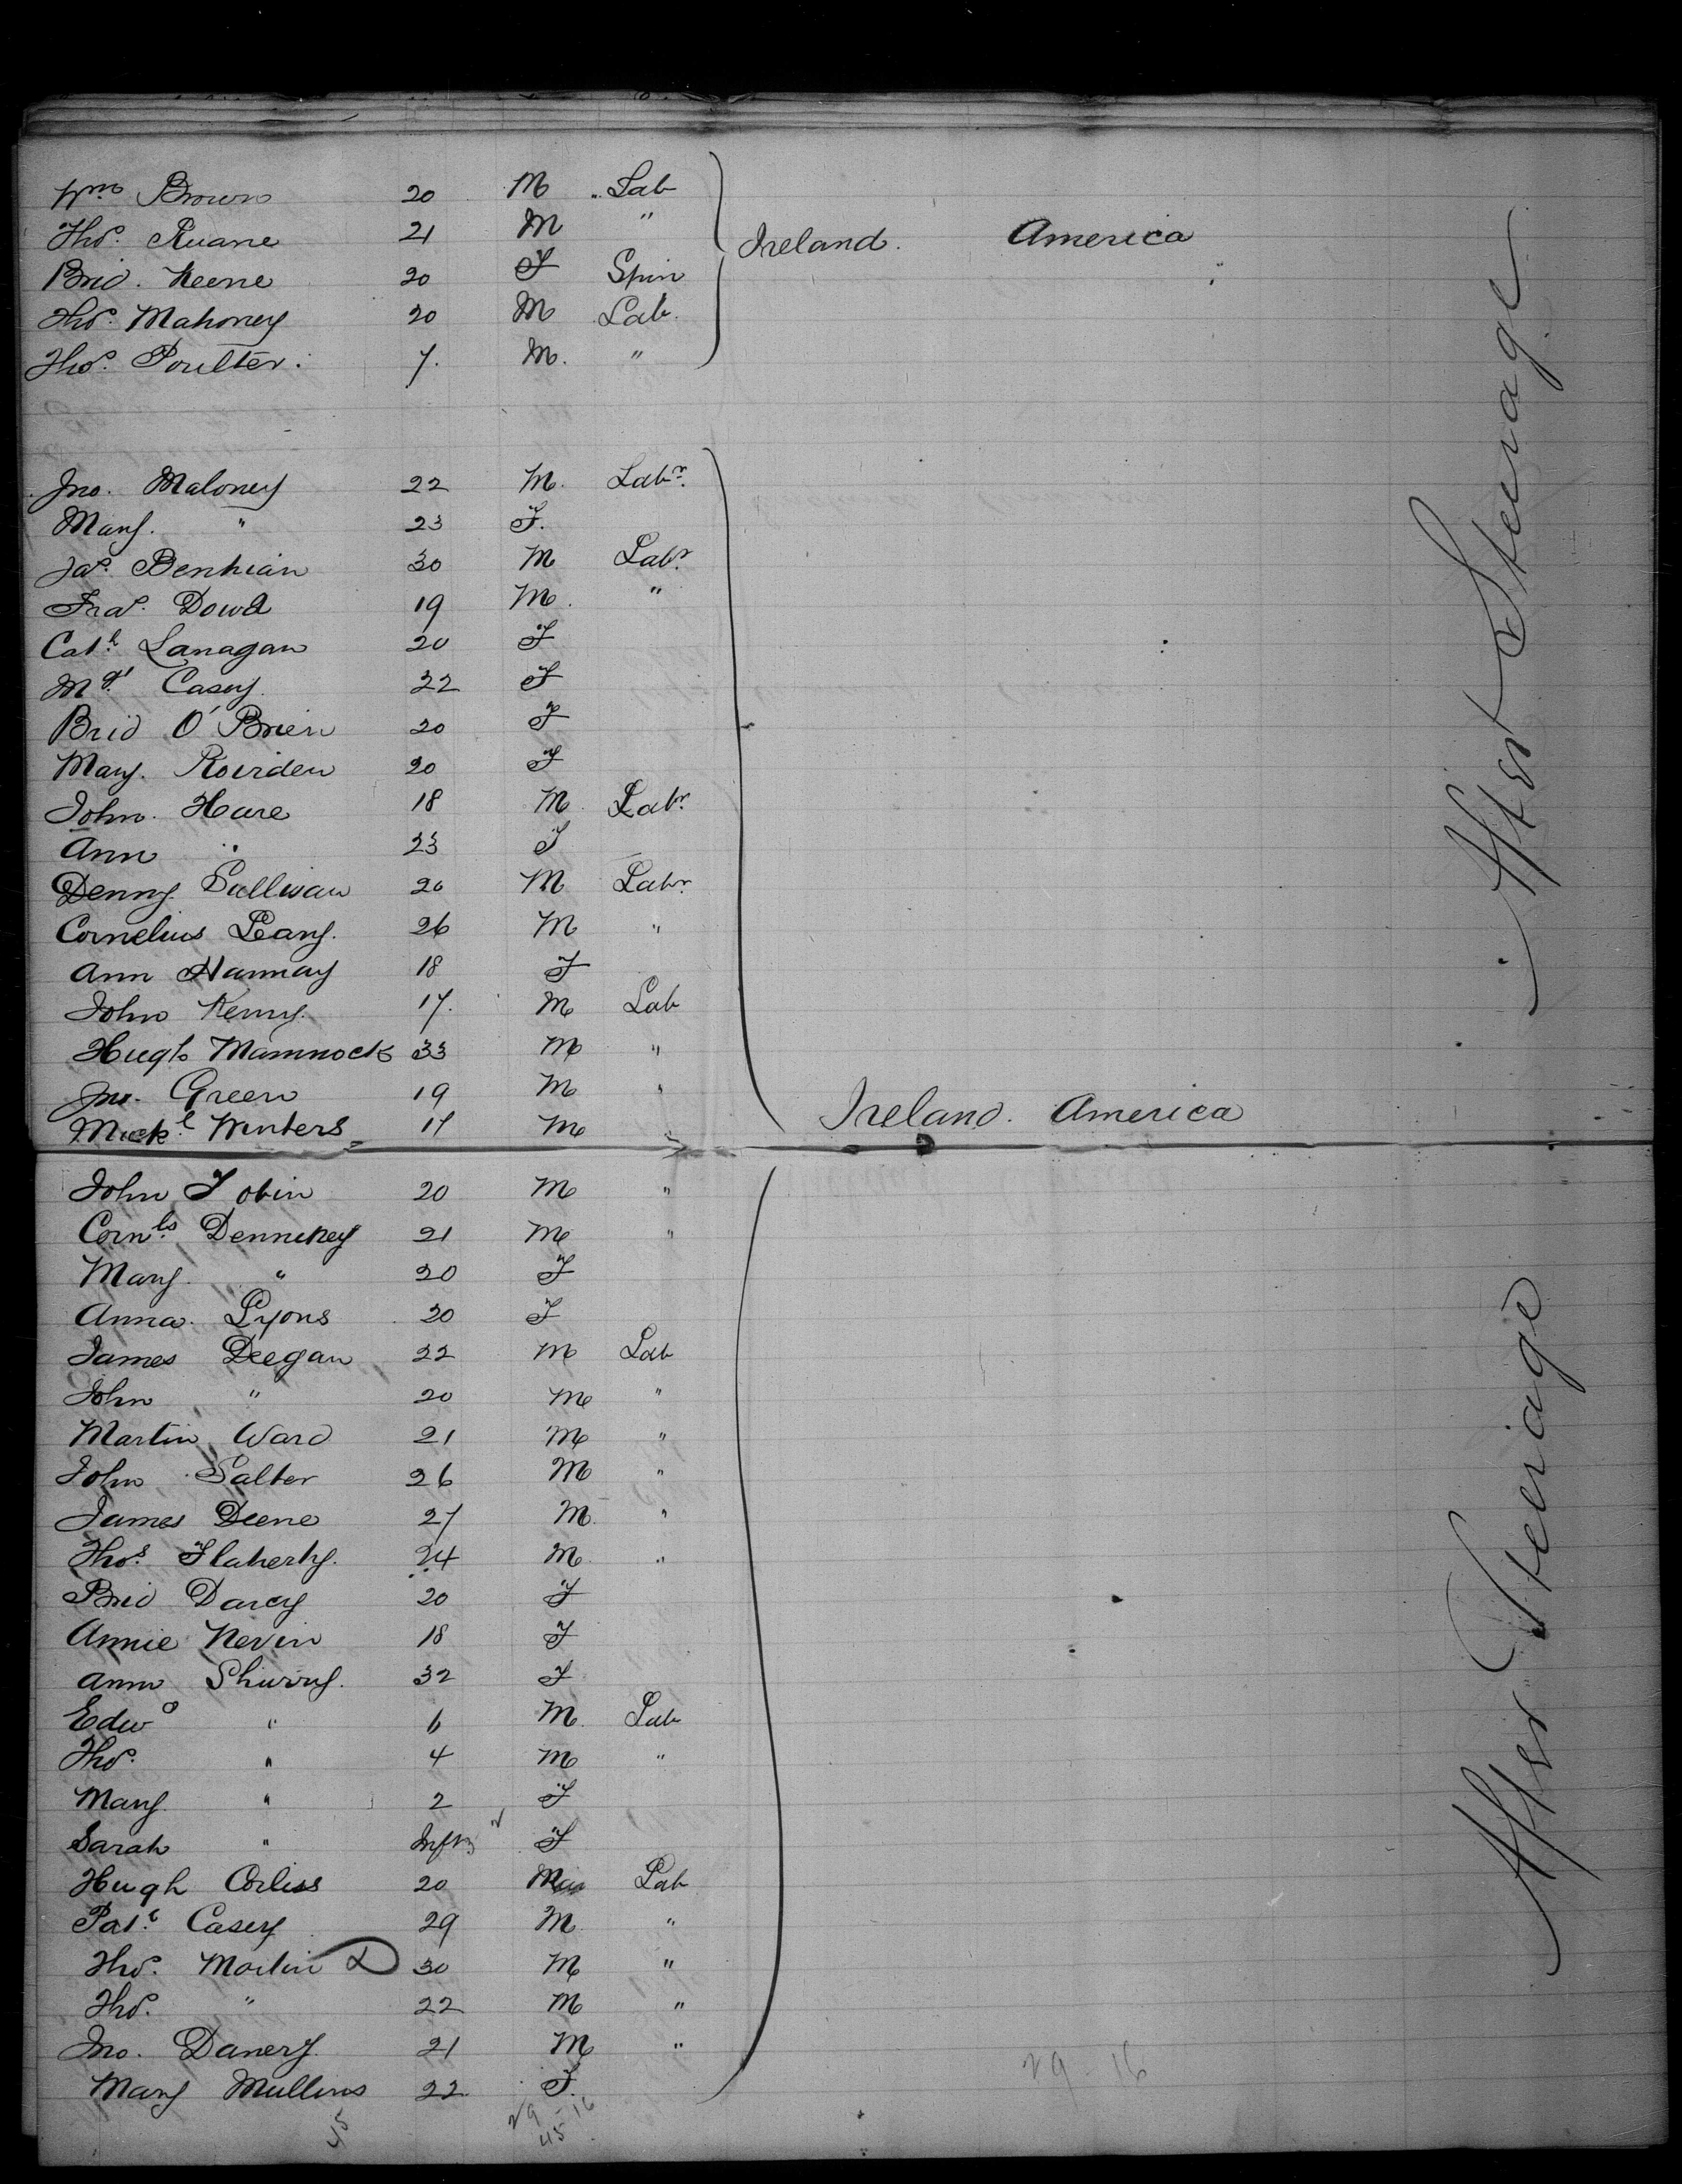 Wm Brown 20 M " Lab
Thos. Ruane 21 M "
Brid. Keene 20 F Spin
Ireland. America
Thos. Mahoney 20 M Lab.
Thos. Poulter. 7. M. "
Jno. Maloney 22 M. Labr.
Mary. " 23 F.
Jas. Benhian 30 M Labr.
Fras. Dowd 19 M. "
Cath. Lanagan 20 F
Mgt. Casey 22 F
Brid O'Brien 20 F
Mary. Roirden 20 F
John. Hare 18 M Labr.
Ann " 23 F
Denny Sullivan 20 M Labr.
Cornelius Leary. 26 M "
Ann Hannay 18 F
John Kenny. 17. M Lab
Hugh Mamnock 33 M "
Jno. Green 19 M "
Michl. Winters 17 M "
Ireland. America
After Steerage
John Tobin 20 M "
Cornls. Dennehey 21 M "
Mary. " 20 F
Anna. Lyons 20 F
James Deegan 22 M Lab
John " 20 M "
Martin Ward 21 M "
John Salter 26 M "
James Deene 27 M. "
Thos. Flaherty. 24 M. "
Brid Darcy 20 F
Annie Nevin 18 F
Ann Shurry. 32 F
Edwd " 6 M. Lab
Thos. " 4 M "
Mary " 2 F
Sarah " Inft F
Hugh Corliss 20 M Lab
Patk. Casey 29 M. "
Thos. Martin D 30 M "
Thos. " 22 M "
Jno. Danery 21 M "
Mary Mullins 22. F.
After Steerage
29 - 16
45
29 - 16
45